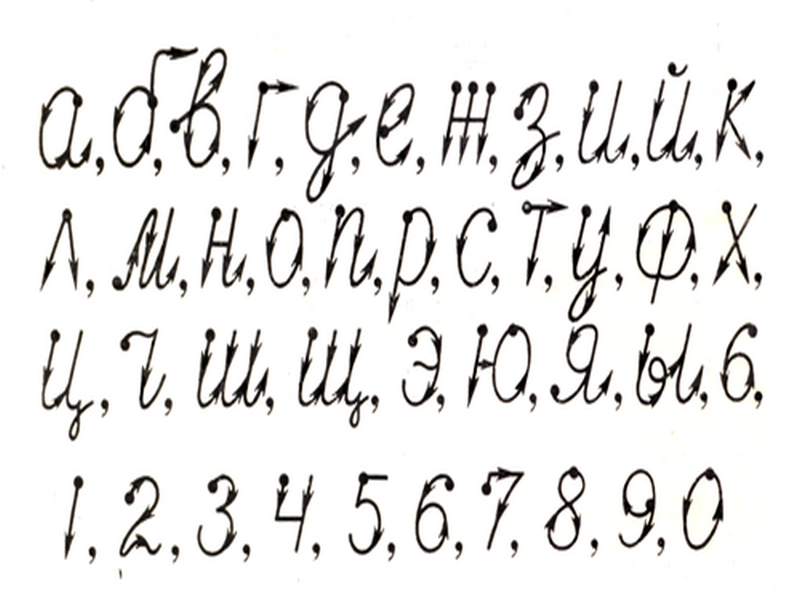 а, б, в, г, д, е, ж, з, и, й, к,
л, м, н, о, п, р, с, т, у, ф, х,
ц, ч, ш, щ, э, ю, я, ы, ь,
1, 2, 3, 4, 5, 6, 7, 8, 9, 0